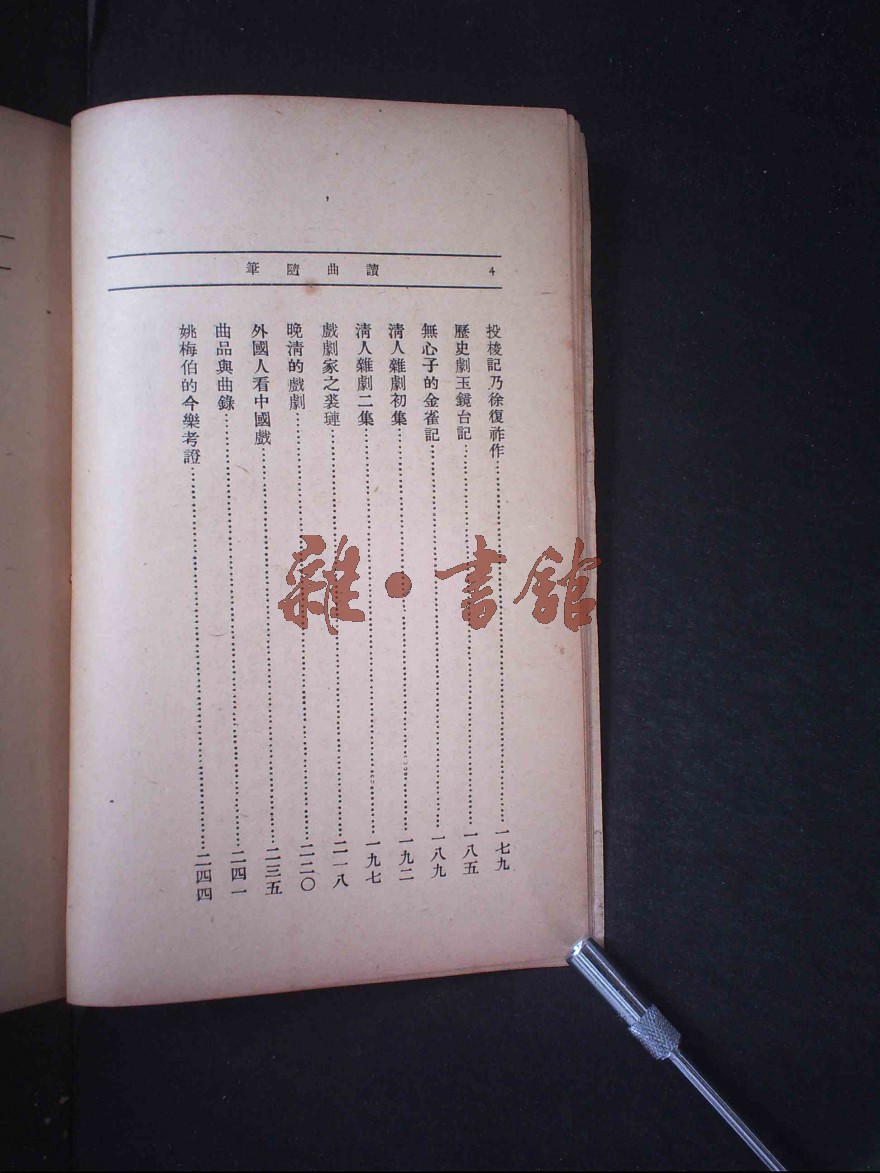 讀曲隨筆 4
投梭記乃徐復祚作……一七九
歷史劇玉鏡台記……一八五
無心子的金雀記……一八九
清人雜劇初集……一九二
清人雜劇二集……一九七
戲劇家之裘璉……二一八
晚清的戲劇……二二〇
外國人看中國戲……二三五
曲品與曲錄……二四一
姚梅伯的今樂考證……二四四
雜·書館